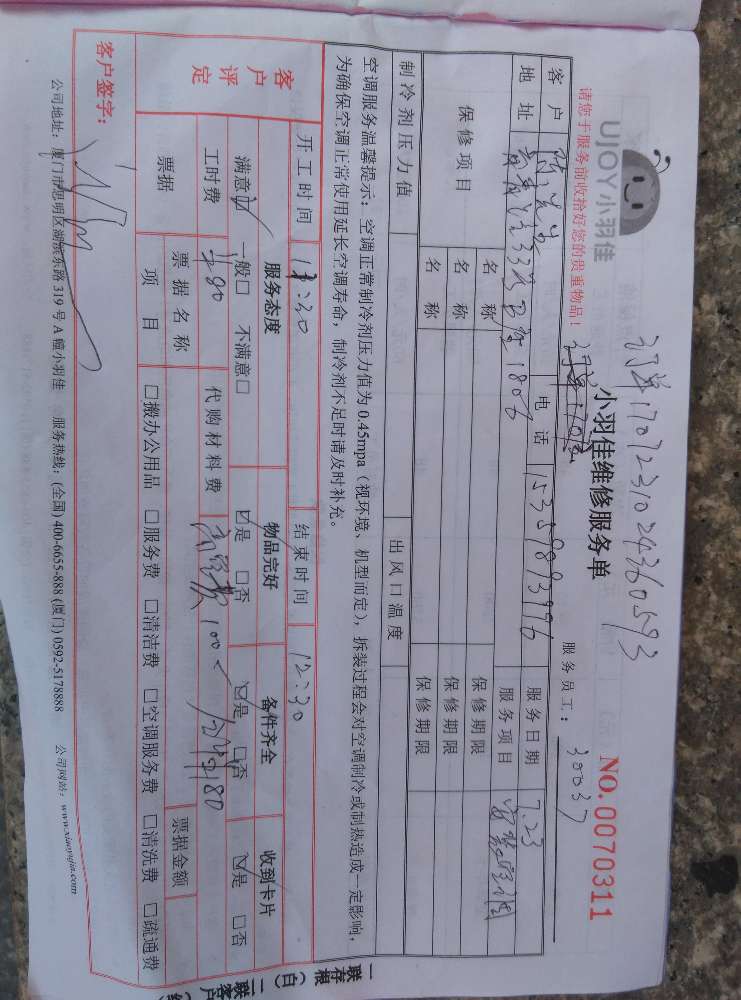 订单1707231024360593
UJOY 小羽佳
小羽佳维修服务单
NO. 0070311
请您于服务前收拾好您的贵重物品!
服务员工: 30037
客户
电话 15359893996
服务日期 7.23
地址 1806
服务项目
保修项目
名称 保修期限
名称 保修期限
名称 保修期限
制冷剂压力值 出风口温度
空调服务温馨提示: 空调正常制冷剂压力值为 0.45mpa (视环境、机型而定), 拆装过程会对空调制冷或制热造成一定影响,
为确保空调正常使用延长空调寿命, 制冷剂不足时请及时补充。
开工时间 结束时间 12:30
客户评定
服务态度 物品完好 备件齐全 收到卡片
满意□ 一般□ 不满意□ □是 □否 □是 □否 □是 □否
工时费 代购材料费
票据 票据名称 票据金额
项目 □搬办公用品 □服务费 □清洁费 □空调服务费 □清洗费 □疏通费
客户签字:
公司地址: 厦门市思明区湖滨东路 319 号 A 幢小羽佳 服务热线: (全国) 400-6655-888 (厦门) 0592-5178888 公司网站: www.xiaoyujia.com
一联存根(白) 二联客户